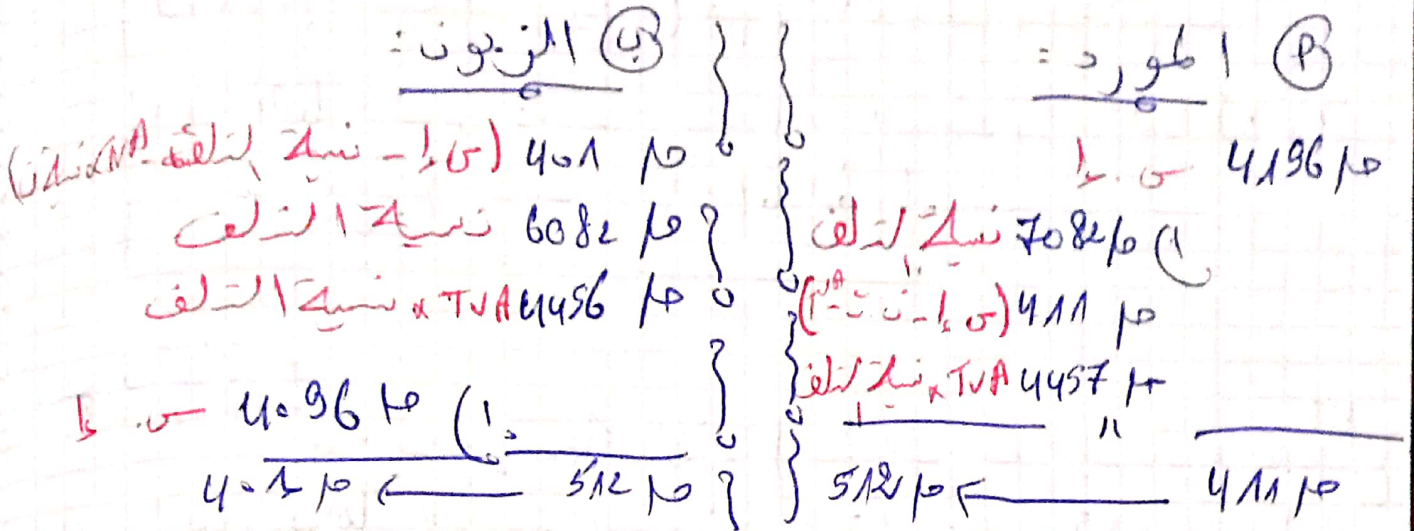 (أ) المورد:
حـ 4196 س.إ
إلى حـ 7082 نسبة التلف
حـ 411 (س إ - ن ت -
حـ 4457 TVA x نسبة التلف
"
حـ 411 ← حـ 512
(ب) الزبون:
حـ 401 (س إ - نسبة التلف -
حـ 6082 نسبة التلف
حـ 4456 TVA x نسبة التلف
إلى حـ 4096 س.إ
حـ 512 ← حـ 401